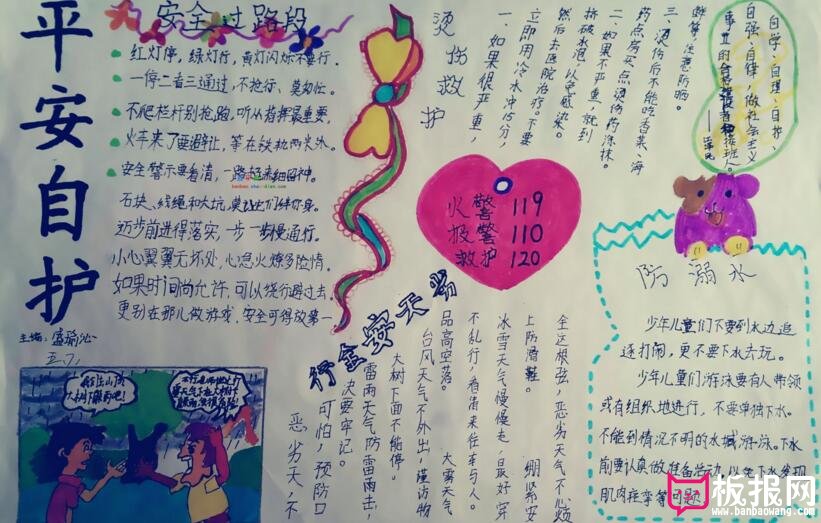 平安自护
主编：
五.1
安全过路段
红灯停，绿灯行，黄灯闪烁不要行。
一停二看三通过，不抢行、莫匆忙。
不爬栏杆别抢跑，听从指挥最重要，
火车来了要避让，等在铁轨两米外。
安全警示要看清，一路
石块、线绳和大坑，莫让它们绊你身。
迈步前进得落实，一步一步慢通行。
小心翼翼无坏处，心急火燎多险情。
如果时间尚允许，可以绕行避过去。
更别在那儿做游戏，安全可得放第一
烫伤救护
一、如果很严重，
立即用冷水冲15分，
然后去医院治疗。不要
挤破水泡，以免感染。
二、如果不严重，就到
药店房买点烫伤药涂抹。
三、烫伤后不能吃香菜、海
鲜等，注意防晒。
自学、自理、自护、
自强、自律，做社会主义
事业的合格建设者和接班人。
——江泽民
火警 119
报警 110
救护 120
恶劣天安全行
恶劣天，不
可怕，预防口
诀要牢记。
雷雨天气防雷雨击，
大树下面不能停。
台风天气不外出，谨访物
品高空落。 大雾天气
不乱行，看清来往车与人。
冰雪天气慢慢走，最好穿
上防滑鞋。 绷紧安
全这根弦，恶劣天气不心烦
防溺水
少年儿童们不要到水边追
逐打闹，更不要下水去玩。
少年儿童们游泳要有人带领
或有组织地进行，不要单独下水。
不能到情况不明的水域游泳。下水
前要认真做准备活动，以免下水发现
肌肉痉挛等问题。
板报网
www.banbaowang.com